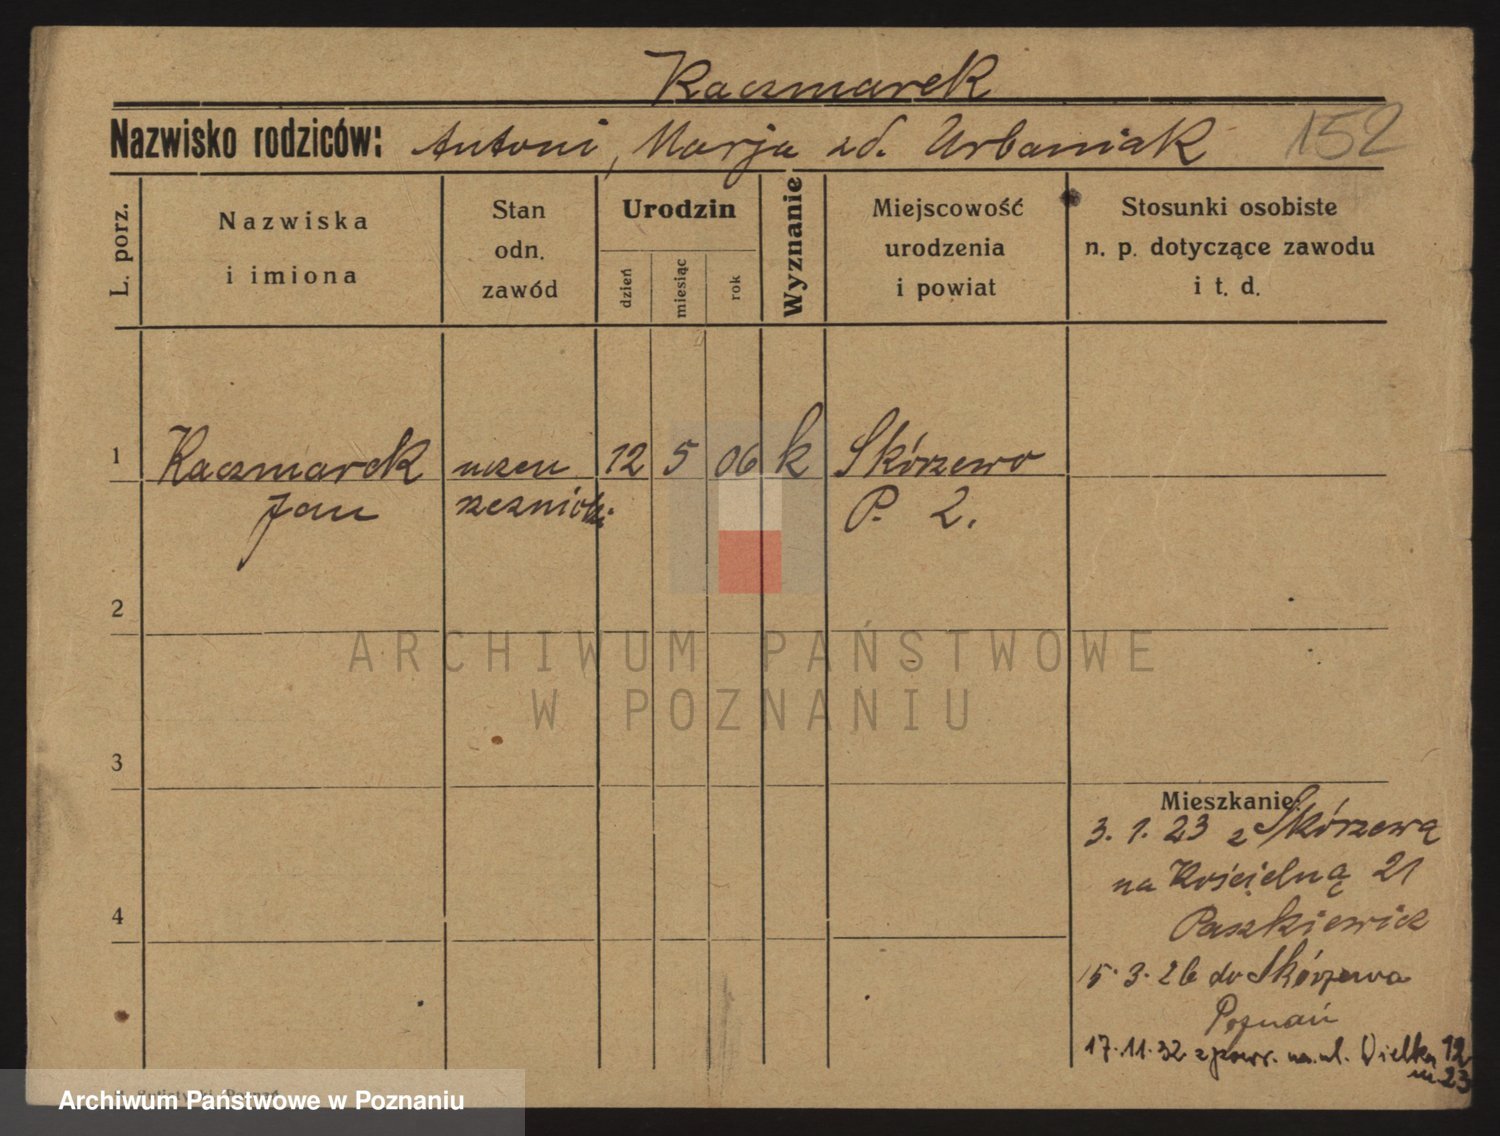 Kaczmarek
Nazwisko rodziców: Antoni, Marja zd. Urbaniak 152
L. porz.
Nazwiska
i imiona
Stan
odn.
zawód
Urodzin
dzień
miesiąc
rok
Wyznanie
Miejscowość
urodzenia
i powiat
Stosunki osobiste
n. p. dotyczące zawodu
i t. d.
1 Kaczmarek uczeń 12 5 06 k Skórzewo
Jan rzeźnicki P. Z.
2
3
4
Mieszkanie:
3. 1. 23 z Skórzewa
na Kościelną 21
Paszkiewicz
15. 3. 26 do Skórzewa
Poznań
17.11.32 z powr. na ul. Wielka 12
m 23
ARCHIWUM PAŃSTWOWE
W POZNANIU
Archiwum Państwowe w Poznaniu